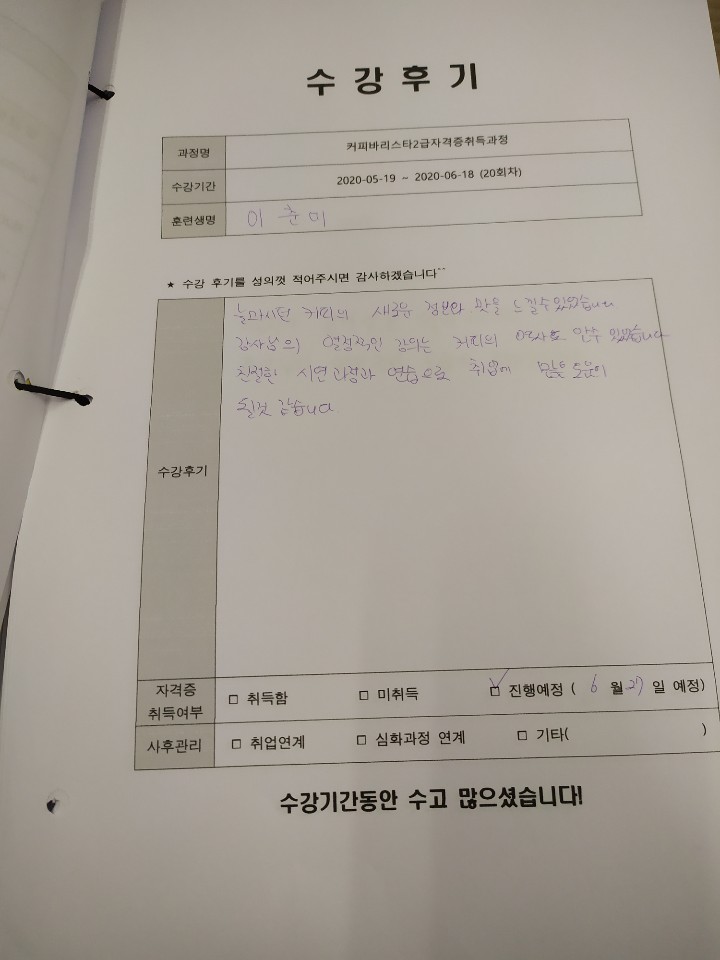 수강후기
과정명 커피바리스타2급자격증취득과정
수강기간 2020-05-19 ~ 2020-06-18 (20회차)
훈련생명 이춘미
★ 수강 후기를 성의껏 적어주시면 감사하겠습니다^^
늘마시던 커피의 새로운 정보와 맛을 느낄수있었습니다
강사님의 열정적인 강의는 커피의 역사도 알수 있었습니다
친절한 시연과정과 연습으로 취업에 많은 도움이
될것 같습니다
수강후기
자격증 취득여부 □ 취득함 □ 미취득 ☑ 진행예정 ( 6 월 27 일 예정)
사후관리 □ 취업연계 □ 심화과정 연계 □ 기타( )
수강기간동안 수고 많으셨습니다!